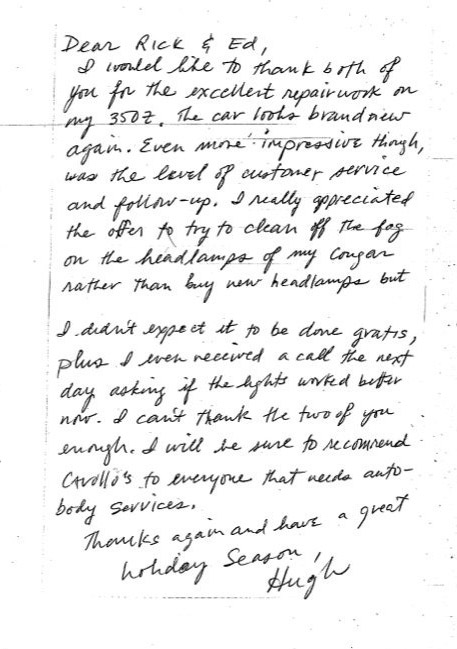 Dear Rick & Ed,
I would like to thank both of
you for the excellent repair work on
my 350Z. The car looks brand new
again. Even more impressive though,
was the level of customer service
and follow-up. I really appreciated
the offer to try to clean off the fog
on the headlamps of my Cougar
rather than buy new headlamps but
I didn't expect it to be done gratis,
plus I even received a call the next
day asking if the lights worked better
now. I can't thank the two of you
enough. I will be sure to recommend
to everyone that needs auto-
body services.
Thanks again and have a great
holiday season,
Hugh